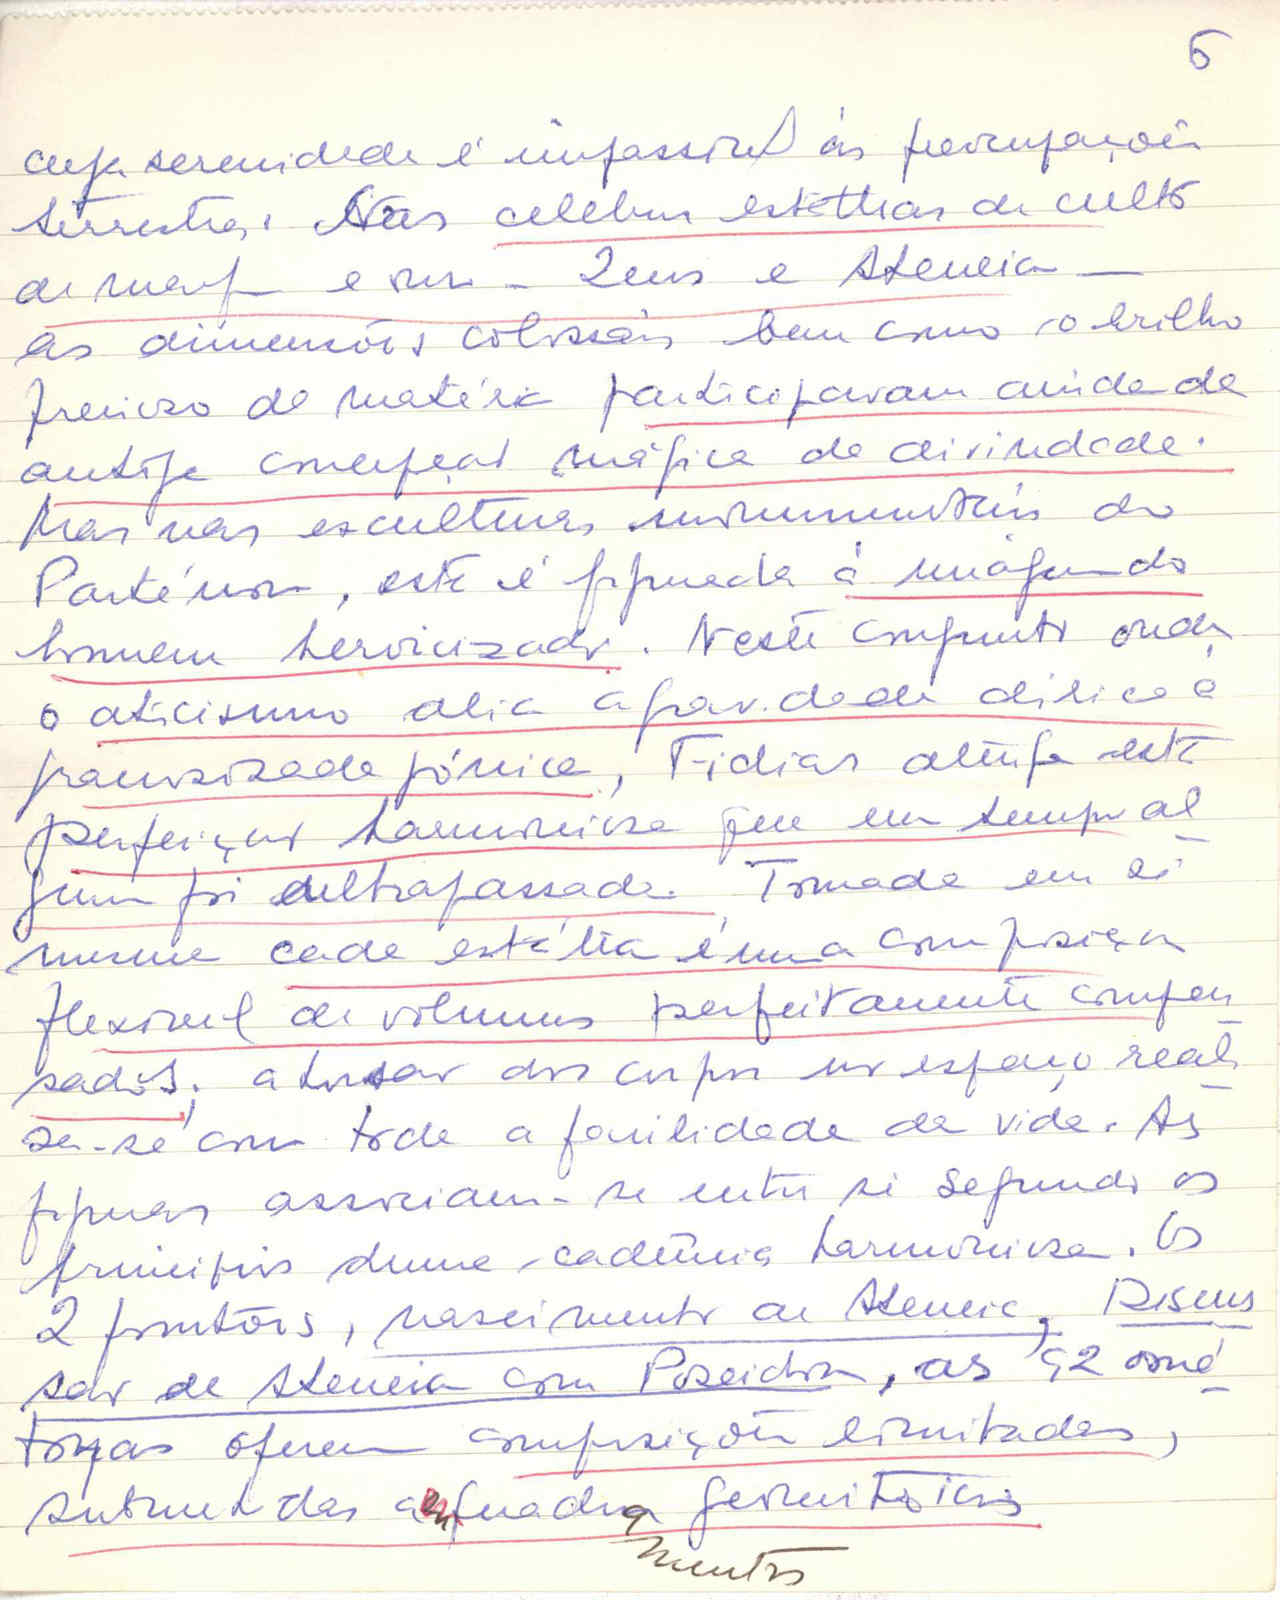 5
cuja serenidade é impassível às preocupações
terrestres. Nas celebres estátuas de culto
de marfim e ouro - Zeus e Ateneia -
as dimensões colossais bem como o brilho
precioso da matéria participavam ainda da
antiga concepção mágica da divindade.
Mas nas esculturas monumentais do
Parténon, esta é figurada à imagem do
homem heroicizado. Neste conjunto onde
o aticismo alia a gravidade dórica à
graciosidade jónica, Fídias atinge esta
perfeição harmoniosa que em tempo al
gum foi ultrapassada. Tomada em si
mesma cada estátua é uma composição
flexível de volumes perfeitamente compen
sados; a torsão dos corpos no espaço reali
za-se com toda a facilidade da vida. As
figuras associam-se entre si segundo os
princípios duma cadência harmoniosa. Os
2 frontões, nascimento de Ateneia, Discus
são de Ateneia com Poseidon, as 92 mé
topas oferecem composições limitadas,
submetidas a enquadra geométricos
mentos